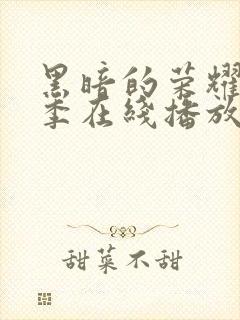 黑暗的荣耀
季在线播放
甜菜不甜